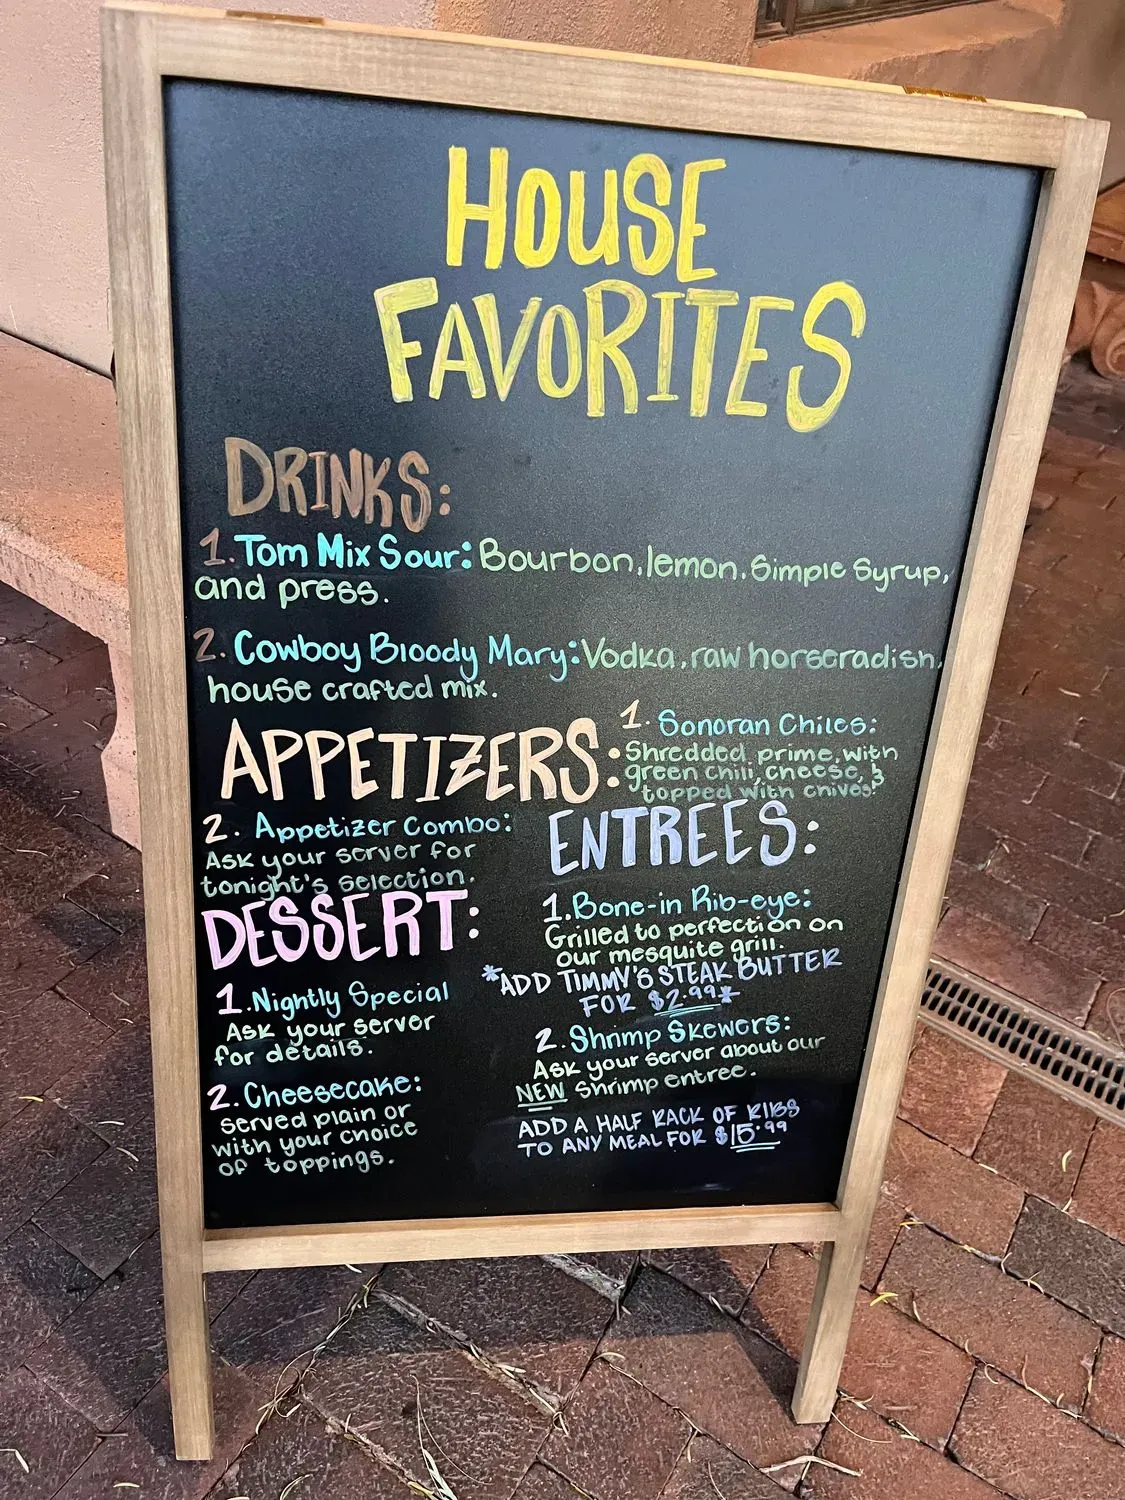 HOUSE
FAVORITES
DRINKS:
1. Tom Mix Sour: Bourbon, lemon, Simple Syrup,
and press.
2. Cowboy Bloody Mary: Vodka, raw horseradish,
house crafted mix.
APPETIZERS:
1. Sonoran Chiles:
Shredded prime, with
green chili, cheese, &
topped with chives!
2. Appetizer Combo:
Ask your server for
tonight's selection.
ENTREES:
1. Bone-in Rib-eye:
Grilled to perfection on
our mesquite grill.
*ADD TIMMY'S STEAK BUTTER
FOR $2.99*
2. Shrimp Skewers:
Ask your server about our
NEW Shrimp entree.
ADD A HALF RACK OF RIBS
TO ANY MEAL FOR $15.99
DESSERT:
1. Nightly Special
Ask your server
for details.
2. Cheesecake:
served plain or
with your choice
of toppings.